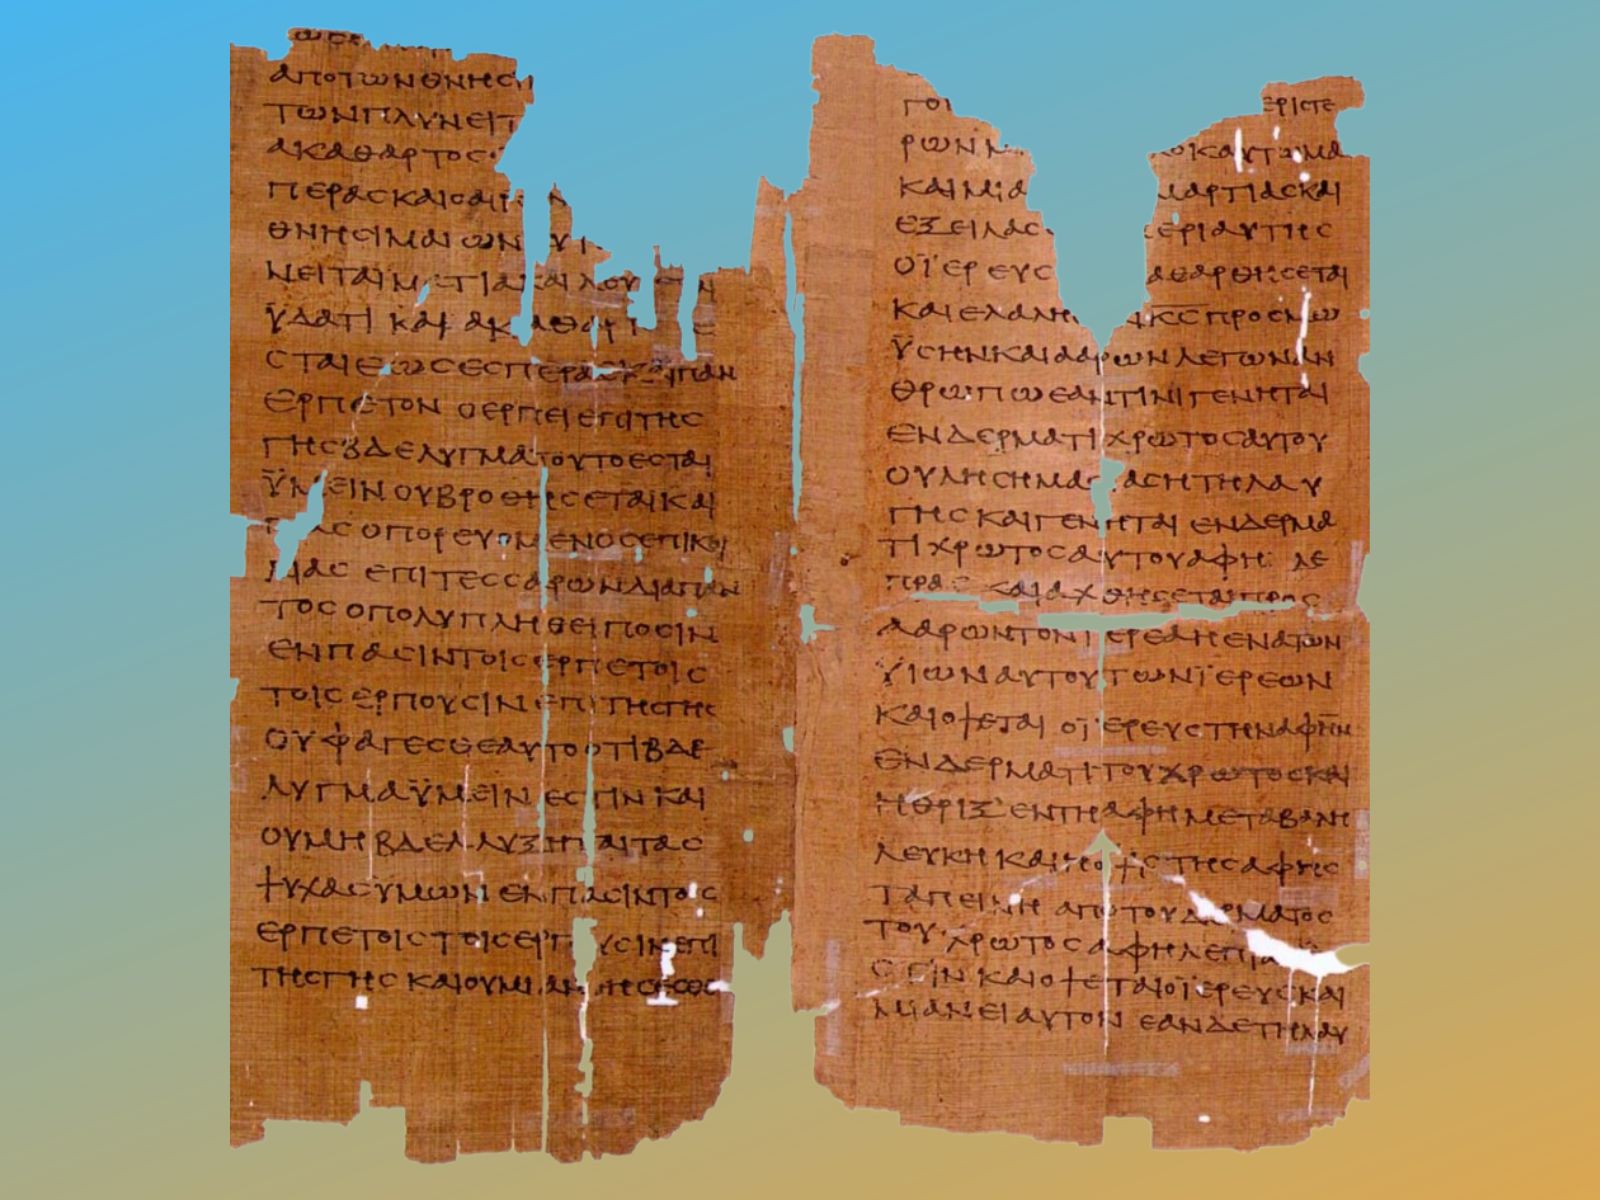 ΑΠΟΤΩΝΘΝΗϹΙ
ΤΩΝΠΛΥΝΕΙΤ
ΑΚΑΘΑΡΤΟϹ
ΠΕΡΑϹΚΑΙΟΑΙΡ
ΘΝΗϹΙΜΑΙΩΝ
ΝΕΙΤΑΙΜΑΤΙΑΚΑΙΛΟΥ
ΫΔΑΤΙΚΑΙΑΚΑΘΑΡΤ
ϹΤΑΙΕΩϹΕϹΠΕΡΑϹΚΑΙΠΑΝ
ΕΡΠΕΤΟΝΟΕΡΠΕΙΕΠΙΤΗϹ
ΓΗϹΒΔΕΛΥΓΜΑΤΟΥΤΟΕϹΤΑΙ
ΫΜΕΙΝΟΥΒΡΟΘΗϹΕΤΑΙΚΑΙ
ΑϹΟΠΟΡΕΥΟΜΕΝΟϹΕΠΙΚΟΙ
ΛΙΑϹΕΠΙΤΕϹϹΑΡΩΝΔΙΑΠΑΝ
ΤΟϹΟΠΟΛΥΠΛΗΘΕΙΠΟϹΙΝ
ΕΝΠΑϹΙΝΤΟΙϹΕΡΠΕΤΟΙϹ
ΤΟΙϹΕΡΠΟΥϹΙΝΕΠΙΤΗϹΓΗϹ
ΟΥΦΑΓΕϹΘΕΑΥΤΟΟΤΙΒΔΕ
ΛΥΓΜΑΫΜΕΙΝΕϹΤΙΝΚΑΙ
ΟΥΜΗΒΔΕΛΛΥΞΗΤΑΙΤΑϹ
ΨΥΧΑϹΥΜΩΝΕΝΠΑϹΙΝΤΟΙϹ
ΕΡΠΕΤΟΙϹΤΟΙϹΕΡΠΥϹΙΝΕΠΙ
ΤΗϹΓΗϹΚΑΙΟΥΜΙΑΝΗϹΕϹΘΕ
ΓΟΙ ΕΡΙϹΤΕ
ΡΩΝΜ ΚΑΥΤΩΜΑ
ΚΑΙΜΙΑ ΜΑΡΤΙΑϹΚΑΙ
ΕΞΕΙΛΑϹ ΕΡΙΑΥΤΗϹ
ΟΪΕΡΕΥϹ ΑΘΑΡΘΗϹΕΤΑΙ
ΚΑΙΕΛΑΛΗϹ Κ̅Ϲ̅ΠΡΟϹΜΩ
ΫϹΗΝΚΑΙΑΑΡΩΝΛΕΓΩΝΑΝ
ΘΡΩΠΩΕΑΝΤΙΝΙΓΕΝΗΤΑΙ
ΕΝΔΕΡΜΑΤΙΧΡΩΤΟϹΑΥΤΟΥ
ΟΥΛΗϹΗΜΑϹΑϹΗΤΗΛΑΥ
ΓΗϹΚΑΙΓΕΝΗΤΑΙΕΝΔΕΡΜΑ
ΤΙΧΡΩΤΟϹΑΥΤΟΥΑΦΗΛΕ
ΠΡΑϹΚΑΙΑΧΘΗϹΕΤΑΙΠΡΟϹ
ΑΑΡΩΝΤΟΝΙΕΡΕΑΗΕΝΑΤΩΝ
ΫΙΩΝΑΥΤΟΥΤΩΝΪΕΡΕΩΝ
ΚΑΙΟΨΕΤΑΙΟΪΕΡΕΥϹΤΗΝΑΦΗΝ
ΕΝΔΕΡΜΑΤΙΤΟΥΧΡΩΤΟϹΚΑΙ
ΗΘΡΙΞΕΝΤΗΑΦΗΜΕΤΑΒΑΛΗ
ΛΕΥΚΗΚΑΙΗΟΨΙϹΤΗϹΑΦΗϹ
ΤΑΠΕΙΝΗΑΠΟΤΟΥΔΕΡΜΑΤΟϹ
ΤΟΥΧΡΩΤΟϹΑΦΗΛΕΠΡΑ
ϹΤΙΝΚΑΙΟΨΕΤΑΙΟΪΕΡΕΥϹΚΑΙ
ΜΙΑΝΕΙΑΥΤΟΝΕΑΝΔΕΤΗΛΑΥ